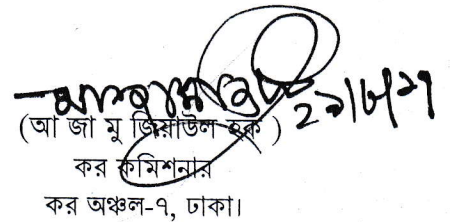 ২৯/৮/২৭
(আ জা মু জিয়াউল হক )
কর কমিশনার
কর অঞ্চল-৭, ঢাকা।